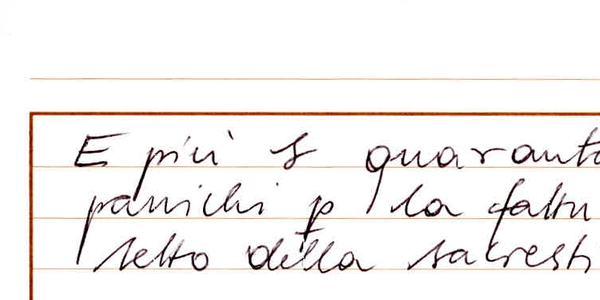 E più s quarant
panichi p la fattu
letto della sacresti